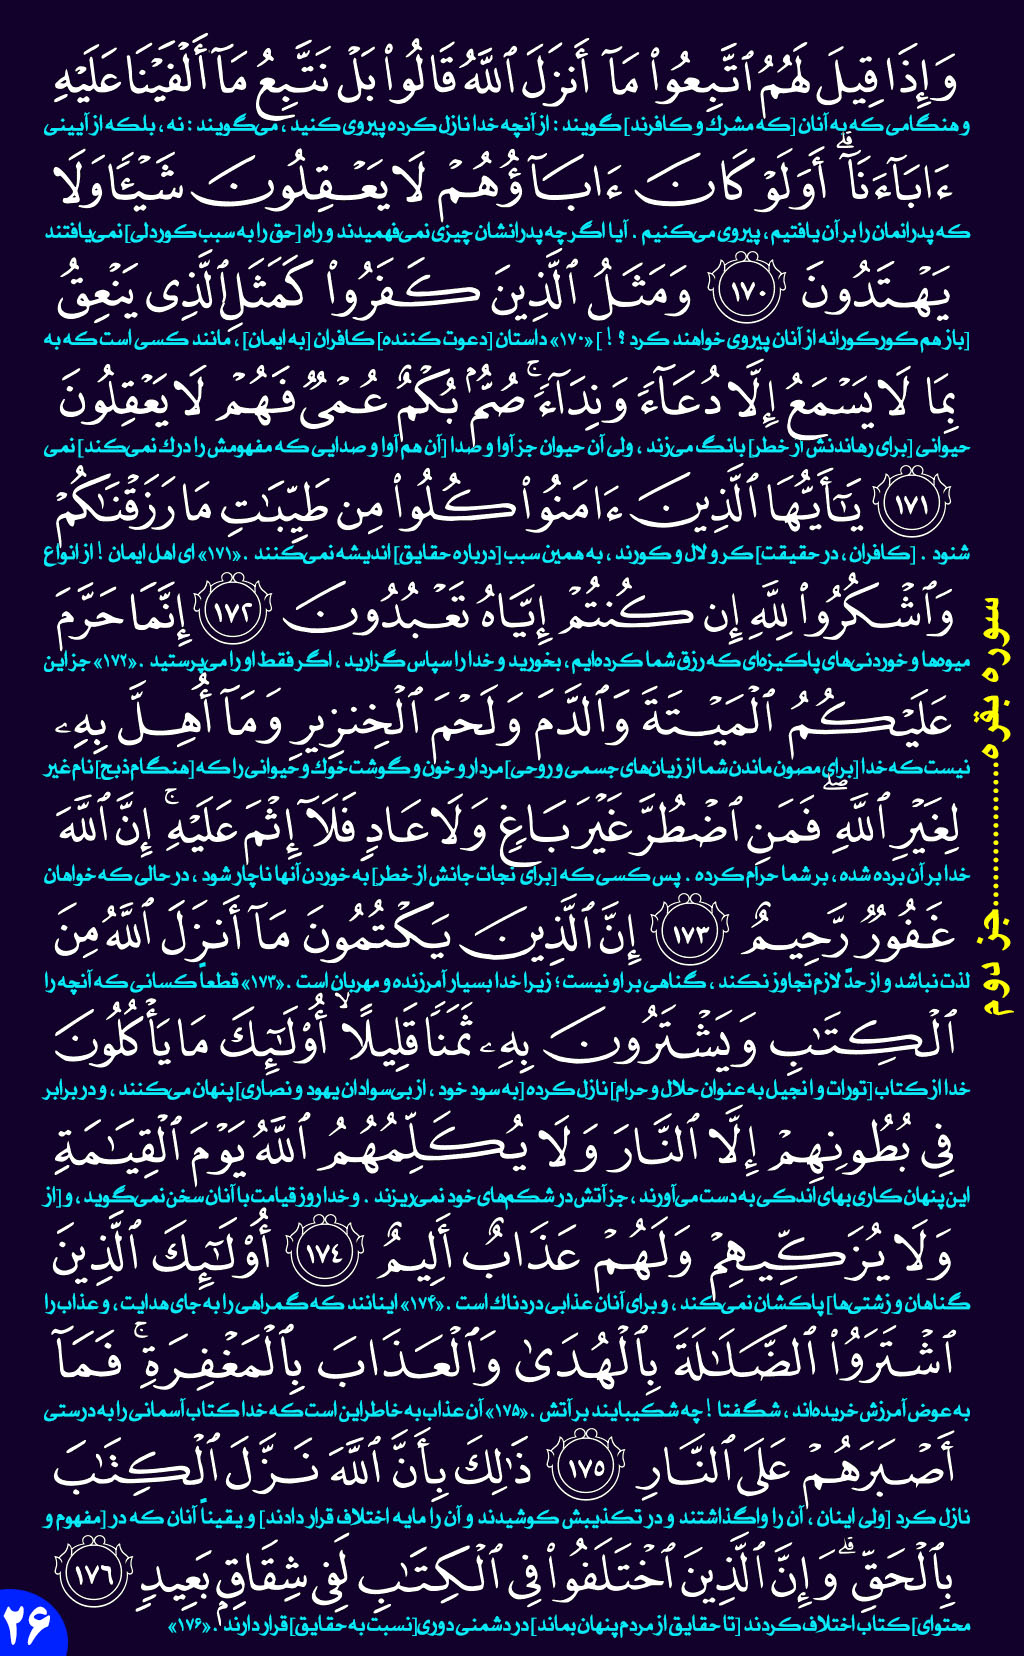 وَإِذَا قِيلَ لَهُمُ ٱتَّبِعُوا۟ مَآ أَنزَلَ ٱللَّهُ قَالُوا۟ بَلْ نَتَّبِعُ مَآ أَلْفَيْنَا عَلَيْهِ
و هنگامی که به آنان [که مشرك و کافرند] گویند : از آنچه خدا نازل کرده پیروی کنید ، می‌گویند : نه ، بلکه از آیینی
ءَابَآءَنَآ ۗ أَوَلَوْ كَانَ ءَابَآؤُهُمْ لَا يَعْقِلُونَ شَيْـًٔا وَلَا
که پدرانمان را بر آن یافتیم ، پیروی می‌کنیم . آیا اگر چه پدرانشان چیزی نمی‌فهمیدند و راه [حق را به سبب کوردلی] نمی‌یافتند
يَهْتَدُونَ ١٧٠ وَمَثَلُ ٱلَّذِينَ كَفَرُوا۟ كَمَثَلِ ٱلَّذِى يَنْعِقُ
[باز هم کورکورانه از آنان پیروی خواهند کرد ؟ ! ] «۱۷۰» داستان [دعوت کننده] کافران [به ایمان] ، مانند کسی است که به
بِمَا لَا يَسْمَعُ إِلَّا دُعَآءً وَنِدَآءً ۚ صُمٌّۢ بُكْمٌ عُمْىٌ فَهُمْ لَا يَعْقِلُونَ
حیوانی [برای رهاندنش از خطر] بانگ می‌زند ، ولی آن حیوان جز آوا و صدا [آن هم آوا و صدایی که مفهومش را درك نمی‌کند] نمی
١٧١ يَـٰٓأَيُّهَا ٱلَّذِينَ ءَامَنُوا۟ كُلُوا۟ مِن طَيِّبَـٰتِ مَا رَزَقْنَـٰكُمْ
شنود . [کافران ، در حقیقت] کر و لال و کورند ، به همین سبب [درباره حقایق] اندیشه نمی‌کنند . «۱۷۱» ای اهل ایمان ! از انواع
وَٱشْكُرُوا۟ لِلَّهِ إِن كُنتُمْ إِيَّاهُ تَعْبُدُونَ ١٧٢ إِنَّمَا حَرَّمَ
میوه‌ها و خوردنی‌های پاکیزه‌ای که رزق شما کرده‌ایم ، بخورید و خدا را سپاس گزارید ، اگر فقط او را می‌پرستید . «۱۷۲» جز این
عَلَيْكُمُ ٱلْمَيْتَةَ وَٱلدَّمَ وَلَحْمَ ٱلْخِنزِيرِ وَمَآ أُهِلَّ بِهِۦ
نیست که خدا [برای مصون ماندن شما از زیان‌های جسمی و روحی] مردار و خون و گوشت خوك و حیوانی را که [هنگام ذبح] نام غیر
لِغَيْرِ ٱللَّهِ ۖ فَمَنِ ٱضْطُرَّ غَيْرَ بَاغٍ وَلَا عَادٍ فَلَآ إِثْمَ عَلَيْهِ ۚ إِنَّ ٱللَّهَ
خدا بر آن برده شده ، بر شما حرام کرده . پس کسی که [برای نجات جانش از خطر] به خوردن آنها ناچار شود ، در حالی که خواهان
غَفُورٌ رَّحِيمٌ ١٧٣ إِنَّ ٱلَّذِينَ يَكْتُمُونَ مَآ أَنزَلَ ٱللَّهُ مِنَ
لذت نباشد و از حدّ لازم تجاوز نکند ، گناهی بر او نیست ؛ زیرا خدا بسیار آمرزنده و مهربان است . «۱۷۳» قطعاً کسانی که آنچه را
ٱلْكِتَـٰبِ وَيَشْتَرُونَ بِهِۦ ثَمَنًا قَلِيلًا ۙ أُو۟لَـٰٓئِكَ مَا يَأْكُلُونَ
خدا از کتاب [تورات و انجیل به عنوان حلال و حرام] نازل کرده [به سود خود ، از بی‌سوادان یهود و نصاری] پنهان می‌کنند ، و در برابر
فِى بُطُونِهِمْ إِلَّا ٱلنَّارَ وَلَا يُكَلِّمُهُمُ ٱللَّهُ يَوْمَ ٱلْقِيَـٰمَةِ
این پنهان کاری بهای اندکی به دست می‌آورند ، جز آتش در شکم‌های خود نمی‌ریزند . و خدا روز قیامت با آنان سخن نمی‌گوید ، و [از
وَلَا يُزَكِّيهِمْ وَلَهُمْ عَذَابٌ أَلِيمٌ ١٧٤ أُو۟لَـٰٓئِكَ ٱلَّذِينَ
گناهان و زشتی‌ها] پاکشان نمی‌کند ، و برای آنان عذابی دردناك است . «۱۷۴» اینانند که گمراهی را به جای هدایت ، و عذاب را
ٱشْتَرَوُا۟ ٱلضَّلَـٰلَةَ بِٱلْهُدَىٰ وَٱلْعَذَابَ بِٱلْمَغْفِرَةِ ۚ فَمَآ
به عوض آمرزش خریده‌اند ، شگفتا ! چه شکیبایند بر آتش . «۱۷۵» آن عذاب به خاطر این است که خدا کتاب آسمانی را به درستی
أَصْبَرَهُمْ عَلَى ٱلنَّارِ ١٧٥ ذَٰلِكَ بِأَنَّ ٱللَّهَ نَزَّلَ ٱلْكِتَـٰبَ
نازل کرد [ولی اینان ، آن را واگذاشتند و در تکذیبش کوشیدند و آن را مایه اختلاف قرار دادند] و یقیناً آنان که در [مفهوم و
بِٱلْحَقِّ ۗ وَإِنَّ ٱلَّذِينَ ٱخْتَلَفُوا۟ فِى ٱلْكِتَـٰبِ لَفِى شِقَاقٍۭ بَعِيدٍ ١٧٦
محتوای] کتاب اختلاف کردند [تا حقایق از مردم پنهان بماند] در دشمنی دوری [نسبت به حقایق] قرار دارند . «۱۷۶»
سوره بقره....................جز دوم
۲۶